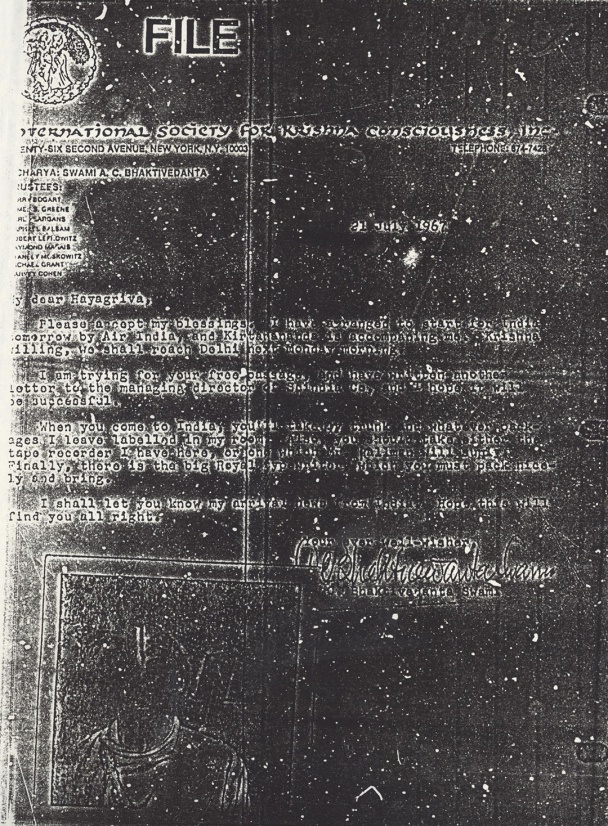 FILE
nternational Society for Krishna Consciousness, Inc.
ENTY-SIX SECOND AVENUE, NEW YORK, N.Y. 10003 TELEPHONE: 674-7428
CHARYA: SWAMI A. C. BHAKTIVEDANTA
USTEES:
MES S. GREENE
PHAEL BALSAM
BERT LEFKOWITZ
ANLEY MOSKOWITZ
CHAEL GRANT
ARVEY COHEN
21 July 1967
y dear Hayagriva,
Please accept my blessings. I have arranged to start for India
omorrow by Air India, and Kirtanananda is accompanying me. Krishna
illing, we shall reach Delhi next Monday morning.
I am trying for your free passage, and have written another
letter to the managing director of and I hope it will
be successful.
When you come to India, you'll take my trunk and whatever pack-
ages I leave labelled in my room. Also, you should take either the
tape recorder I have here, or one which Mr. Kallman will supply.
Finally, there is the big Royal typewriter which you must pack nice-
ly and bring.
I shall let you know my arrival news from India. Hope this will
find you all right.
Your ever well-wisher,
A.C. Bhaktivedanta Swami
A.C. Bhaktivedanta Swami